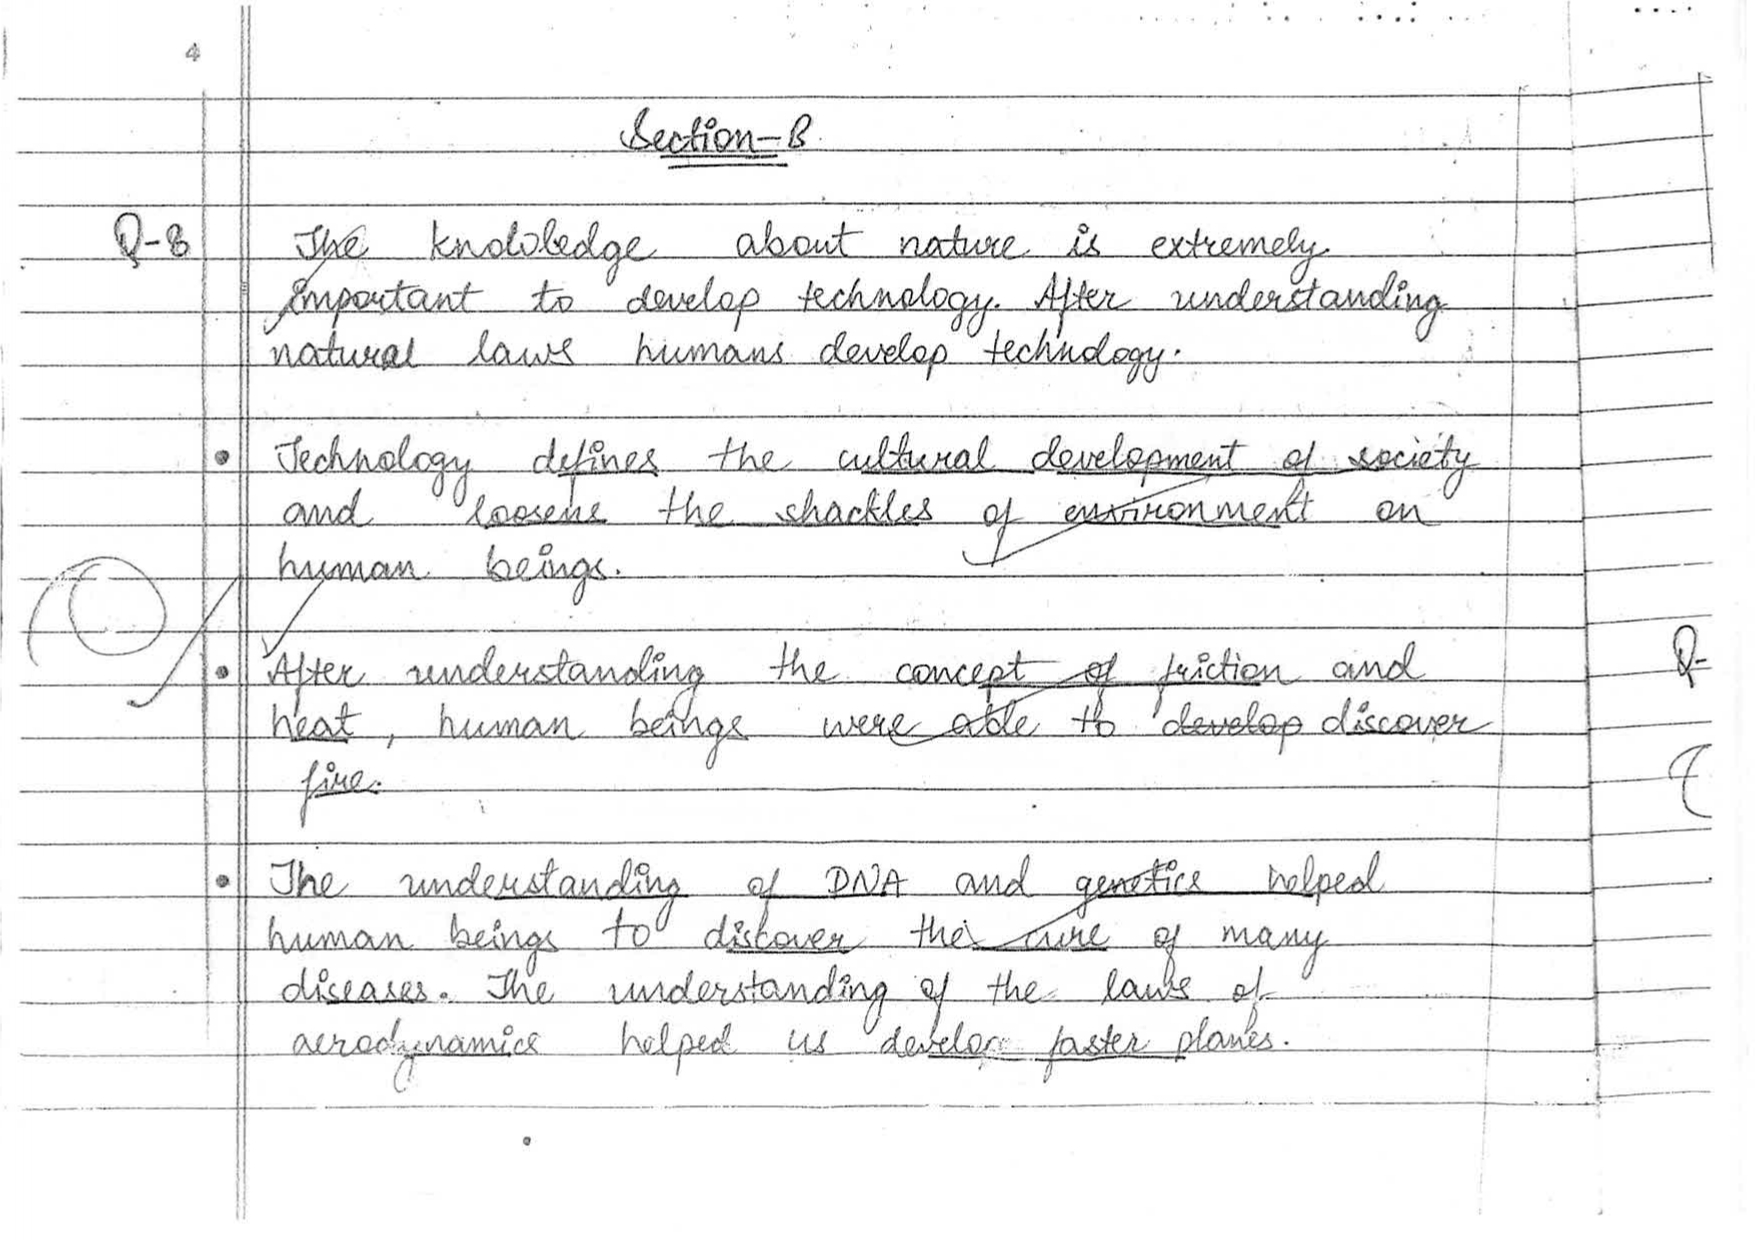 4
Section-B
Q-8 The knowledge about nature is extremely
important to develop technology. After understanding
natural laws humans develop technology.
• Technology defines the cultural development of society
and loosens the shackles of environment on
human beings.
• After understanding the concept of friction and
heat, human beings were able to develop discover
fire.
Q-
• The understanding of DNA and genetics helped
human beings to discover the cure of many
diseases. The understanding of the laws of
aerodynamics helped us develop faster planes.